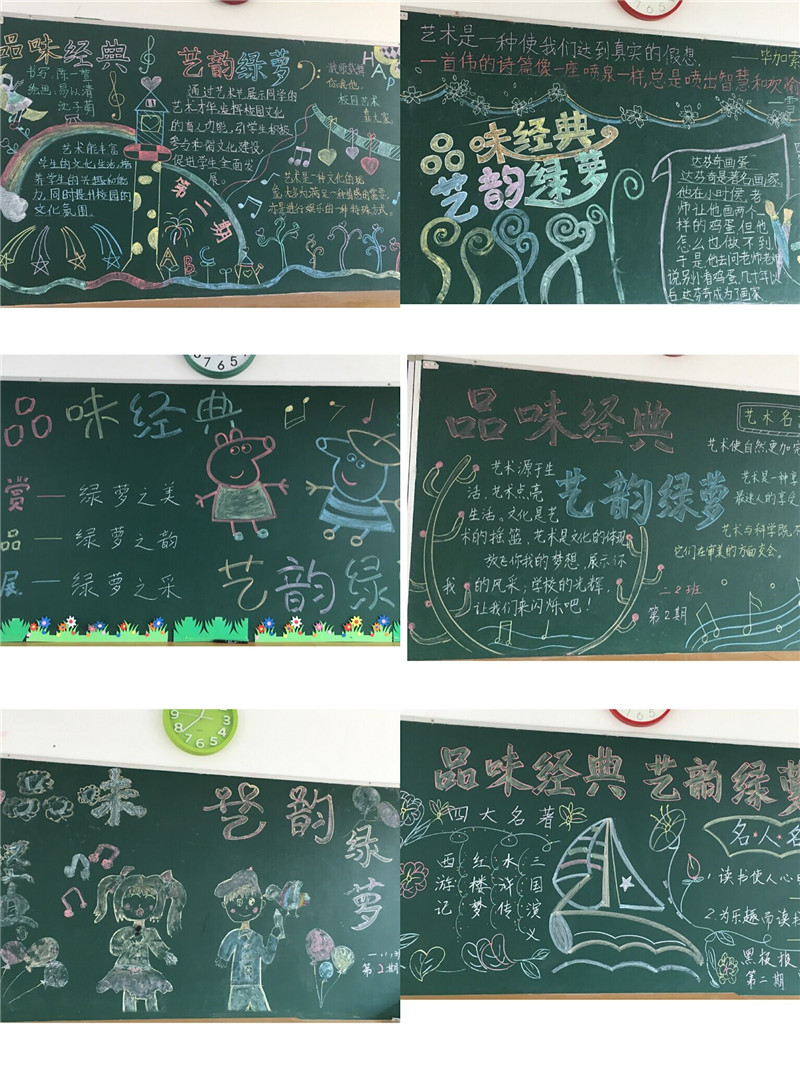 品味经典
艺韵绿萝
书写:陈一萱
绘画:易以清
沈子菊
通过艺术节展示同学的
艺术才华,发挥校园文化
的育人功能,引学生积极
参与和谐文化建设,
促进学生全面发
展。
艺术能丰富
学生的文化生活,培
养学生的兴趣和能
力,同时提升校园的
文化氛围。
第二期
艺术是一种文化的现
象,大多为满足一种情感的需要,
亦是进行娱乐的一种特殊方式。
放歌载舞
你我他,
校园艺术
HAP
A B C
艺术是一种使我们达到真实的假想.
——毕加索
一首伟的诗篇像一座喷泉一样,总是喷出智慧和欢愉
品味经典
艺韵绿萝
达芬奇画蛋
达芬奇是著名画家,
他在小时侯,老
师让他画两个一
样的鸡蛋.但他
怎么也做不到.
于是他去问老师,老师
说别小看鸡蛋,几十年以
后达芬奇成为了画家
7 6 5
品味经典
赏—绿萝之美
品—绿萝之韵
展—绿萝之采
艺韵绿
品味经典
艺韵绿萝
艺术源于生
活,艺术点亮
生活。文化是艺
术的摇篮,艺术是文化的体现
放飞你我的梦想,展示你
我的风采;学校的光辉,
让我们来闪烁吧!
艺术名
艺术使自然更加完
艺术是一种享
最迷人的享受
艺术与科学既不
它们在审美的方面交会。
二2班
第2期
9 8 7 6 5
味
艺韵
绿萝
第2期
品味经典 艺韵绿萝
四大名著
三国演义
水浒传
红楼梦
西游记
名人名
1.读书使人心明
2.为乐趣而读书
黑板报
第二期